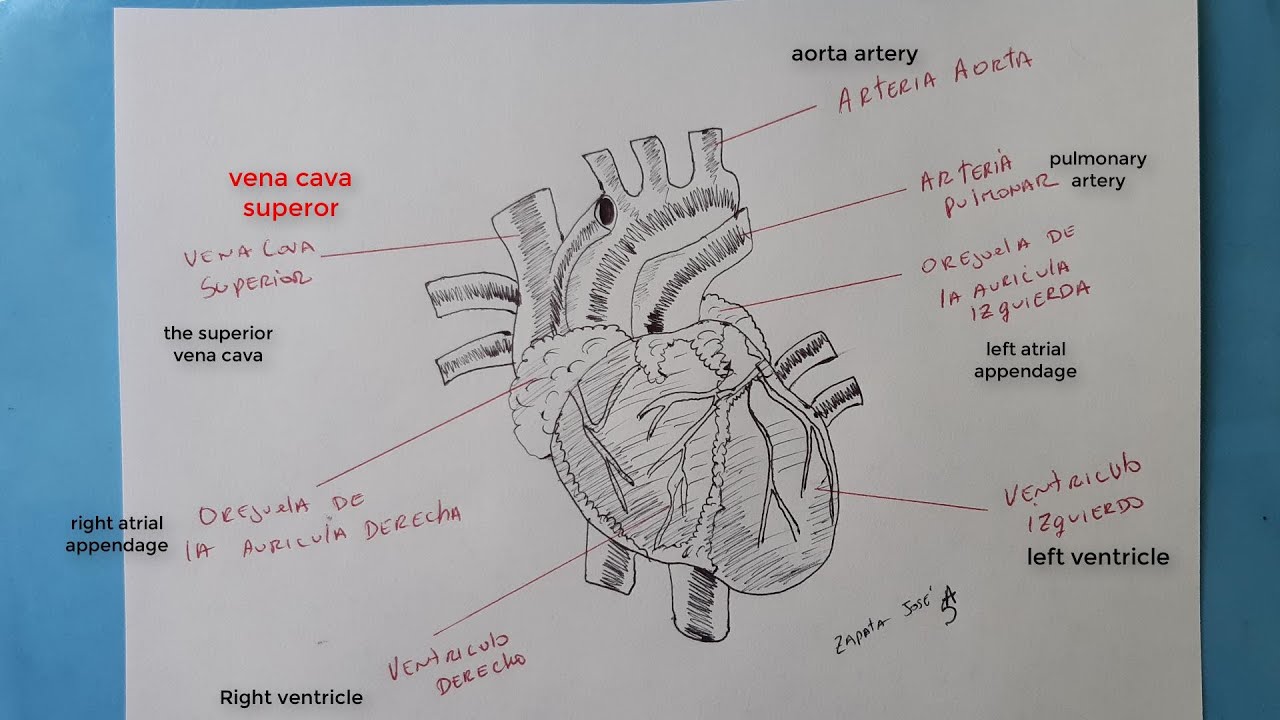 aorta artery
ARTERIA AORTA
pulmonary
artery
ARTERIA
PULMONAR
vena cava
superor
VENA COVA
SUPERIOR
OREJUELA DE
LA AURICULA
IZQUIERDA
the superior
vena cava
left atrial
appendage
VENTRICULO
IZQUIERDO
left ventricle
right atrial
appendage
OREJUELA DE
LA AURICULA DERECHA
ZAPATA JOSÉ A
VENTRICULO
DERECHO
Right ventricle